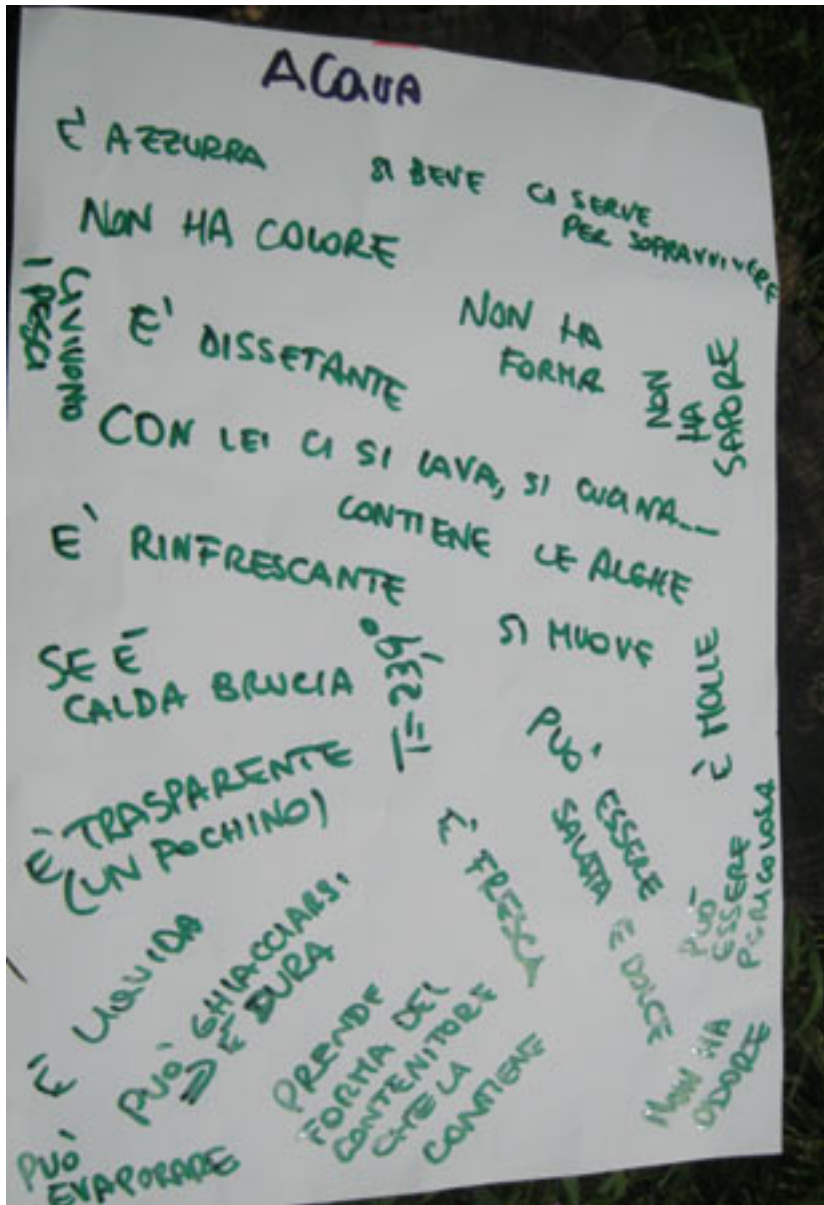 ACQUA
È AZZURRA
SI BEVE
CI SERVE
PER SOPRAVVIVERE
NON HA COLORE
CI VIVONO
I PESCI
E' DISSETANTE
NON HA
FORMA
NON
HA
SAPORE
CON LEI CI SI LAVA, SI CUCINA...
CONTIENE LE ALGHE
E' RINFRESCANTE
SI MUOVE
È MOLLE
SE È
CALDA BRUCIA
E' TRASPARENTE
(UN POCHINO)
È FRESCA
PUO' ESSERE
SALATA E DOLCE
PUÒ
ESSERE
PERICOLOSA
È LIQUIDA
PUO' GHIACCIARSI
È DURA
PRENDE
FORMA DEL
CONTENITORE
CHE LA
CONTIENE
NON HA
ODORE
PUÒ
EVAPORARE